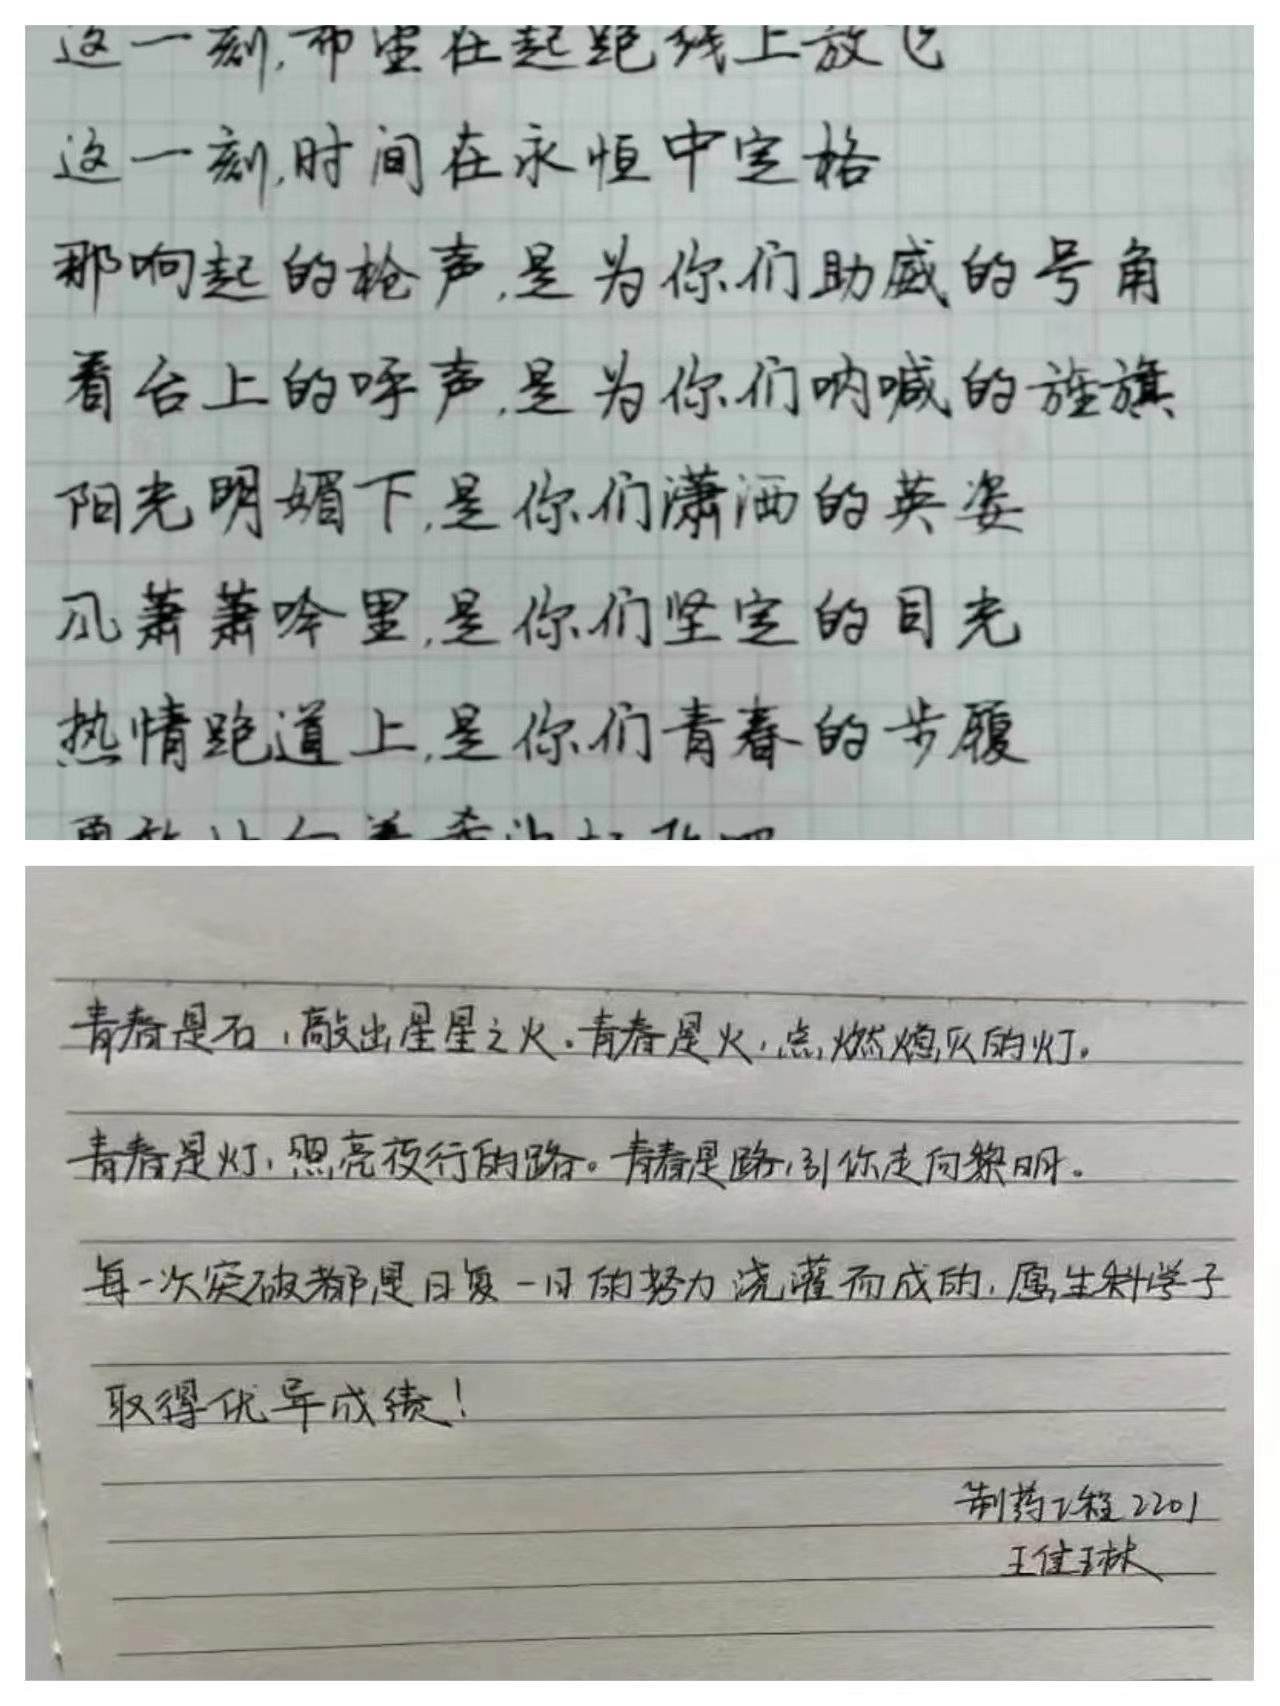 这一刻,希望在起跑线上放飞
这一刻,时间在永恒中定格
那响起的枪声,是为你们助威的号角
看台上的呼声,是为你们呐喊的旌旗
阳光明媚下,是你们潇洒的英姿
风萧萧吟里,是你们坚定的目光
热情跑道上,是你们青春的步履
青春是石,敲出星星之火。青春是火,点燃熄灭的灯。
青春是灯,照亮夜行的路。青春是路,引你走向黎明。
每一次突破都是日复一日的努力浇灌而成的,愿生科学子
取得优异成绩!
制药工程2201
王佳琳